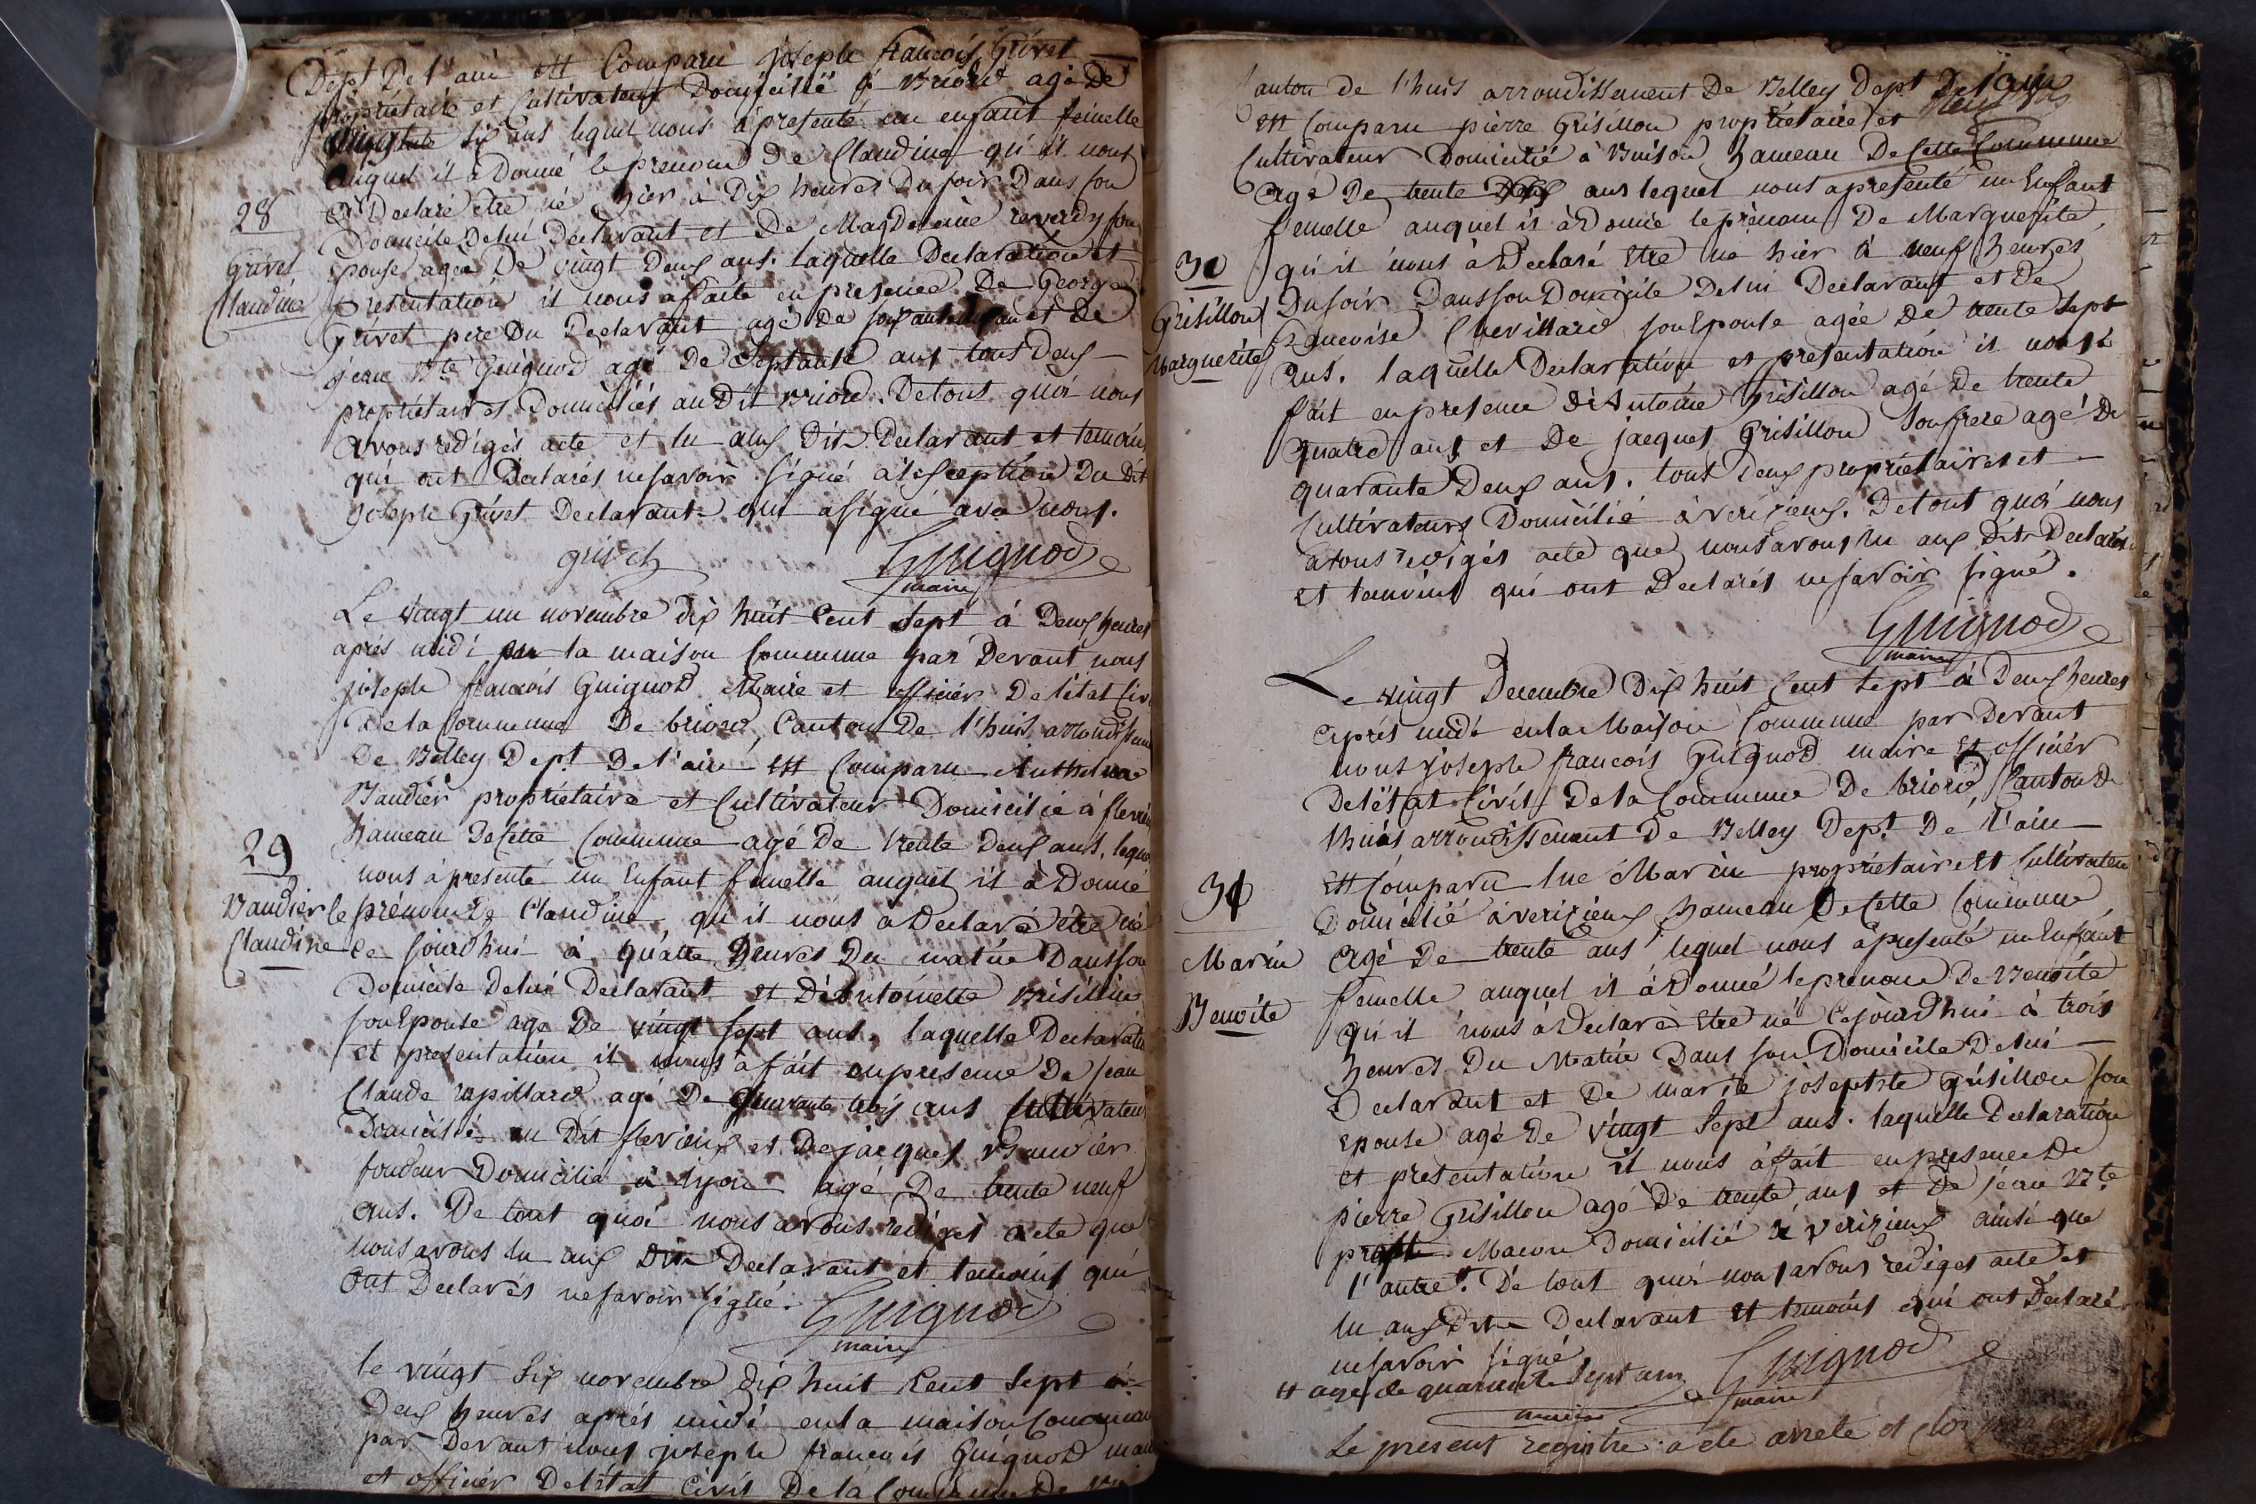 Dept De l'ain est Comparu joseph francois Grivet
propriétaire et Cultivateur Domicillié à Briord agé De
six ans lequel nous à presenté un enfant femelle
auquel il à Donné le prenom De Claudine qu'il nous
à Declaré etre né hier à Dix heures Du soir Dans son
28
Domicile Delui Declarant et De Magdeleine reverdy son
Grivet
Epouse agée De vingt Deux ans. laquelle Declaration et
Claudine
presentation il nous a faite en presence De George
Grivet pere Du Declarant agé De et De
jean Bte Guignod agé De Septante ans tous Deux
proprietaires Domiciliés au Dit Briord. De tout quoi nous
avons redigés acte et lu aux Dits Declarant et temoins
qui ont Declarés ne savoir signé à lexception Du Dit
joseph Grivet Declarant qui a signé avec nous.
grivet Guignod
maire
Le vingt un novembre dix huit Cent sept à Deux heures
aprés midi en la maison Commune par Devant nous
joseph francois Guignod Maire et officier De l'état Civ
De la Commune De briord, Canton De l'huis arrondissem
De Belley Dept De l'ain est Comparu Anthelme
Baudier propriétaire et Cultivateur Domicilié à flevieu
hameau De Cette Commune agé De trente Deux ans, leque
29
nous à presenté un Enfant femelle auquel il à Donné
Baudier
le prénom De Claudine, qu'il nous a Declaré être né
Claudine
ce jourd'hui à quatre heures Du matin Dans son
Domicile Delui Declarant et D'Antoinette Brisillion
son Epouse agé De vingt sept ans, laquelle Declaratio
et presentation il nous à fait en presence De jean
Claude rapillard agé De quarante trois ans Cultivateur
Domiciliés au Dit flevieux et De jacques Baudier
fondeur Domicilié à lyon agé De trente neuf
ans. De tout quoi nous avons rédigés acte que
nous avons lu aux Dits Declarant et temoins qui
ont Declarés ne savoir signé.
Guignod
maire
le vingt six novembre dix huit Cent sept à
Deux heures aprés midi en la maison Commune
par Devant nous joseph francois Guignod mai
et officier De l'état Civil De la Commune De Bri
Canton De l'huis arrondissement De Belley Dept De l'ain
est Comparu pierre Grisillon propriétaire et
Cultivateur Domicilié à Buison hameau De Cette Commune
agé De trente ans lequel nous a presenté un Enfant
femelle auquel il à Donné le prénom De Marguerite,
30
qu'il nous à Declaré Etre né hier à neuf heures
Grisillon
Du soir Dans son Domicile Delui Declarant et De
Marguerite
francoise Chevillard son Epouse agée De trente sept
ans. laquelle Declaration et presentation il nous à
fait en presence D'Antoine Grisillon agé De trente
quatre ans et De jacques Grisillon son frere agé De
quarante Deux ans. tous Deux propriétaires et
Cultivateurs Domicilié à verizieux. De tout quoi nous
avons redigés acte que nous avons lu aux Dits Declara
et temoins qui ont Declarés ne savoir signé.
Guignod
maire
Le vingt Decembre Dix huit Cent sept à Deux heures
aprés midi en la Maison Commune par Devant
nous joseph francois Guignod maire et officier
De l'état Civil De la Commune De briord, Canton De
lhuis arrondissement De Belley Dept De l'ain
31
est Comparu luc Marin propriétaire et Cultivateur
Domicilié à verizieux hameau De Cette Commune
Marin
agé De trente ans lequel nous à presenté un Enfant
Benoite
femelle auquel il à Donné le prenom De Benoite
qu'il nous à Declaré Etre né Ce jourd'hui à trois
heures Du Matin Dans son Domicile Delui
Declarant et De marie josephte Grisillon son
Epouse agé De vingt sept ans. laquelle Declaration
et presentation il nous à fait en presence De
pierre Grisillon agé De trente ans et De jean Bte
Macon Domicilié à verizieux ainsi que
l'autre. De tout quoi nous avons rediges acte et
lu aux Dits Declarant et temoins qui ont Declaré
ne savoir signé
et agé de quarante sept ans Guignod
maire maire
Le present registre à été arreté et clos par